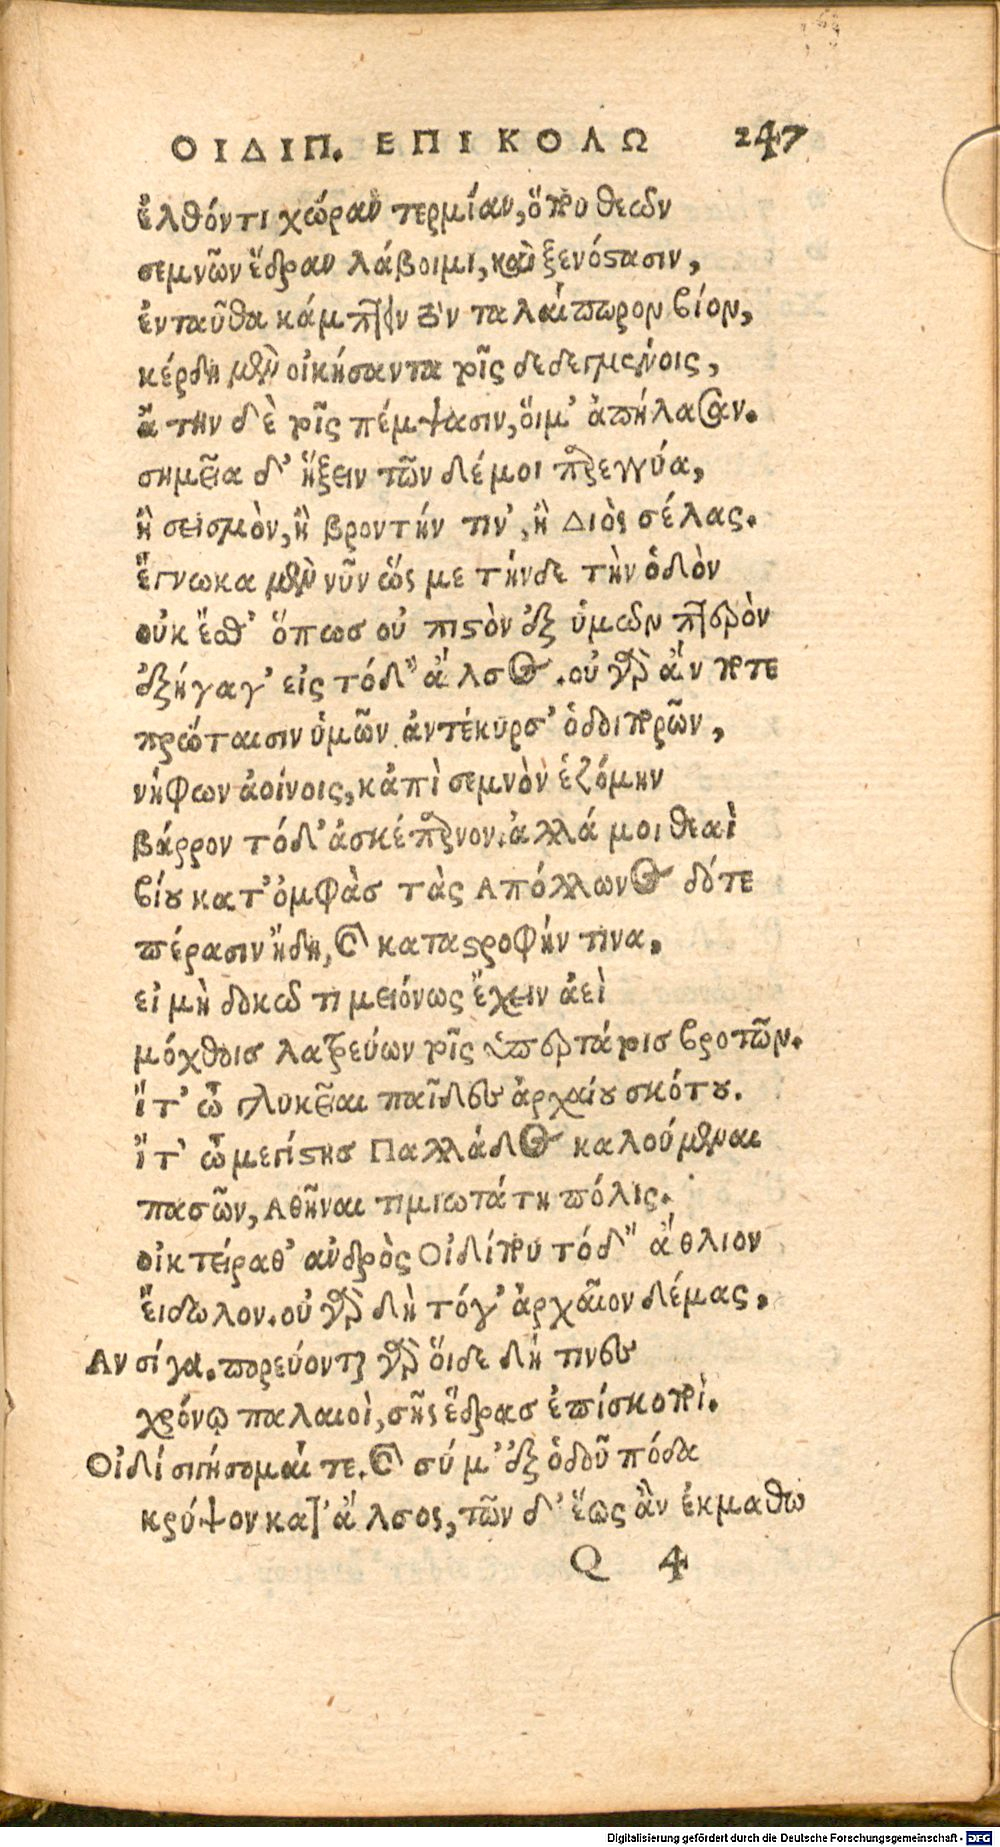 ΟΙΔΙΠ. ΕΠΙ ΚΟΛΩ 247
ἐλθόντι χώραν τερμίαν, ὅπου θεῶν
σεμνῶν ἕδραν λάβοιμι, καὶ ξενόστασιν,
ἐνταῦθα κάμπτειν τὸν ταλαίπωρον βίον,
κέρδη μὲν οἰκήσαντα τοῖς δεδεγμένοις,
ἄτην δὲ τοῖς πέμψασιν, οἵ μ' ἀπήλασαν.
σημεῖα δ' ἥξειν τῶνδέ μοι παρεγγύα,
ἢ σεισμὸν, ἢ βροντήν τιν', ἢ Διὸς σέλας.
ἔγνωκα μὲν νῦν ὥς με τήνδε τὴν ὁδὸν
οὐκ ἔσθ' ὅπως οὐ πιστὸν ἐξ ὑμῶν πτερὸν
ἐξήγαγ' εἰς τόδ' ἄλσος. οὐ γὰρ ἄν ποτε
πρώταισιν ὑμῶν ἀντέκυρσ' ὁδοιπορῶν,
νήφων ἀοίνοις, κἀπὶ σεμνὸν ἑζόμην
βάθρον τόδ' ἀσκέπαρνον. ἀλλά μοι θεαὶ
βίου κατ' ὀμφὰς τὰς Απόλλωνος δότε
πέρασιν ἤδη, καὶ καταστροφήν τινα.
εἰ μὴ δοκῶ τι μειόνως ἔχειν ἀεὶ
μόχθοις λατρεύων τοῖς ὑπερτάτοις βροτῶν.
ἴτ' ὦ γλυκεῖαι παῖδες ἀρχαίου σκότου.
ἴτ' ὦ μεγίστης Παλλάδος καλούμεναι
πασῶν, Αθῆναι τιμιωτάτη πόλις.
οἰκτείραθ' ἀνδρὸς Οἰδίπου τόδ' ἄθλιον
εἴδωλον. οὐ γὰρ δὴ τόγ' ἀρχαῖον δέμας.
Αν σίγα. πορεύονται γὰρ οἵδε δή τινες
χρόνῳ παλαιοὶ, σῆς ἕδρας ἐπίσκοποι.
Οἰδί σιγήσομαί τε. καὶ σύ μ' ἐξ ὁδοῦ πόδα
κρύψον κατ' ἄλσος, τῶν δ' ἕως ἂν ἐκμάθω
Q 4
Digitalisierung gefördert durch die Deutsche Forschungsgemeinschaft - DFG